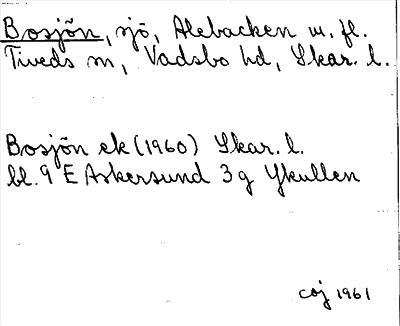 Bosjön, sjö, Alebacken m. fl.
Tiveds sn, Vadsbo hd, Skar. l.
Bosjön ek (1960) Skar. l.
bl. 9 E Askersund 3g Ykullen
coj 1961